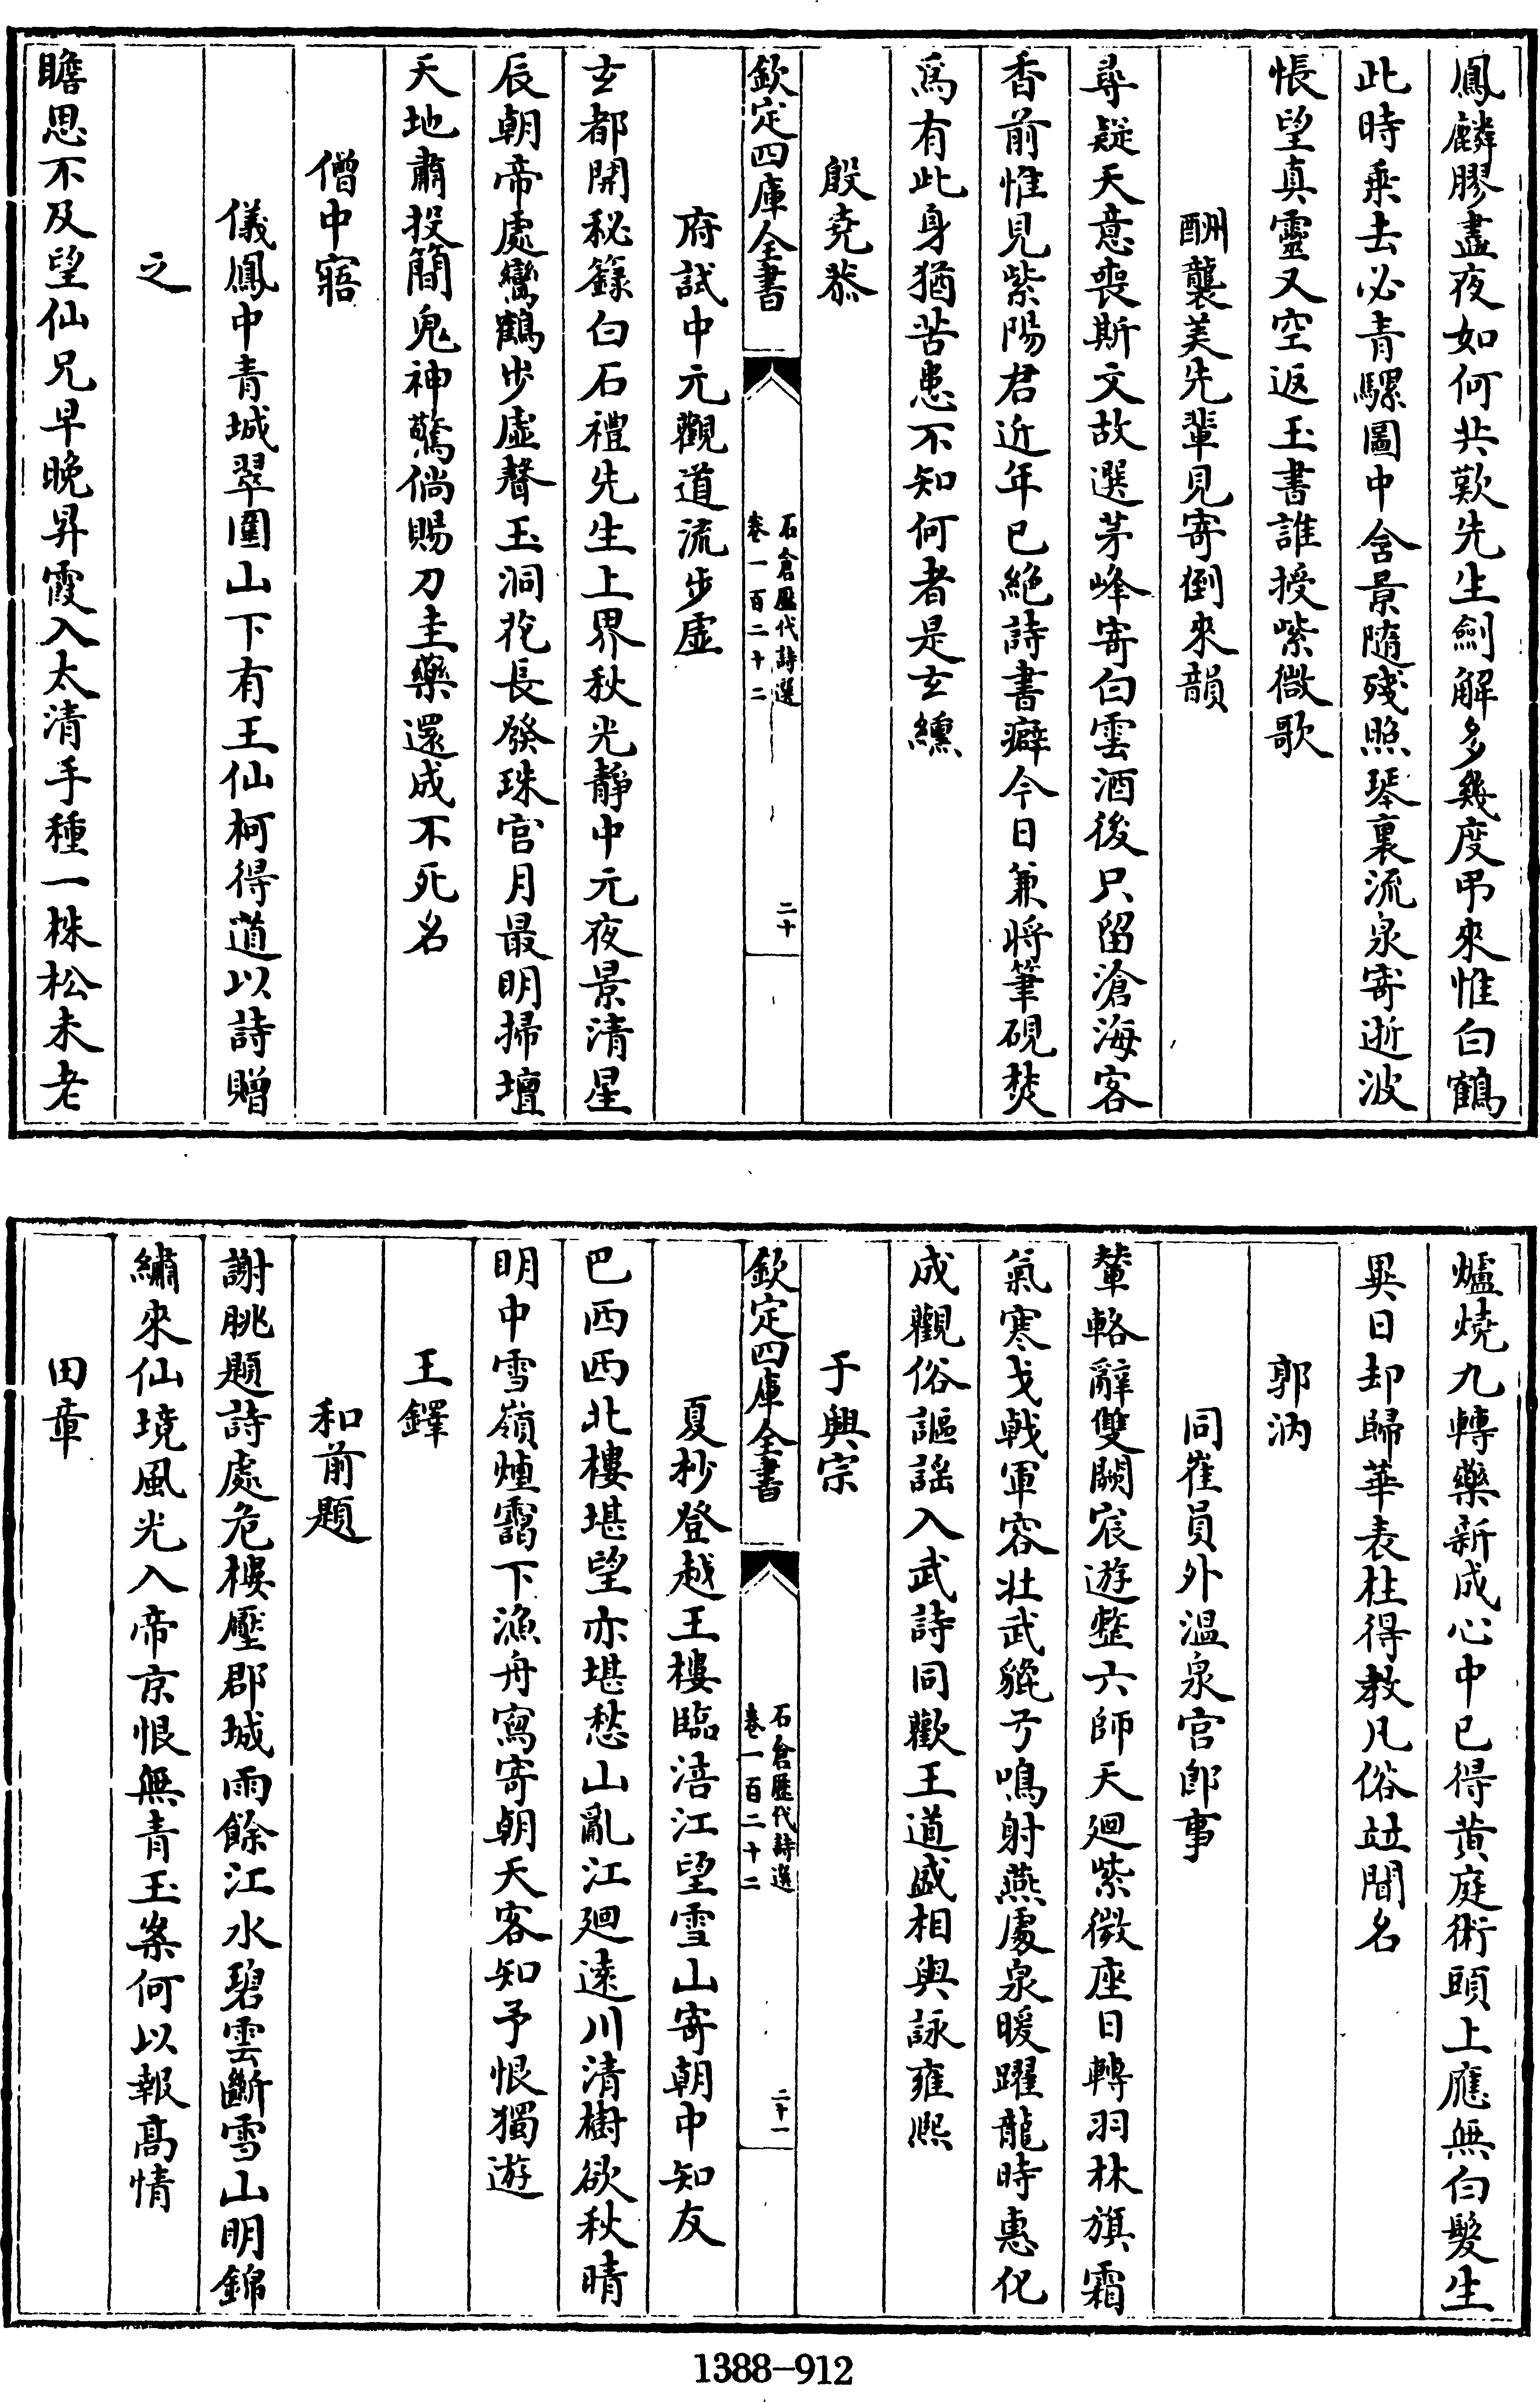 鳳麟膠盡夜如何共歎先生劍解多幾度弔來惟白鶴
此時乘去必青騾圖中含景隨殘照琴裏流泉寄逝波
悵望真靈又空返玉書誰授紫微歌
酬襲美先輩見寄倒來韻
尋疑天意喪斯文故選茅峰寄白雲酒後只留滄海客
香前惟見紫陽君近年已絕詩書癖今日兼將筆硯焚
爲有此身猶苦患不知何者是玄纁
殷堯恭
欽定四庫全書
石倉歷代詩選
卷一百二十二
二十
府試中元觀道流步虛
玄都開秘籙白石禮先生上界秋光靜中元夜景清星
辰朝帝處鸞鶴步虛聲玉洞花長發珠宮月最明掃壇
天地肅投簡鬼神驚倘賜刀圭藥還成不死名
僧中寤
儀鳳中青城翠圍山下有王仙柯得道以詩贈
之
瞻思不及望仙兄早晚昇霞入太清手種一株松未老
爐燒九轉藥新成心中已得黄庭術頭上應無白髮生
異日却歸華表柱得教凡俗竝聞名
郭汭
同崔員外溫泉宮郎事
輦輅辭雙闕宸遊整六師天廻紫微座日轉羽林旗霜
氣寒戈戟軍容壯武貔弓鳴射燕處泉暖躍龍時惠化
成觀俗謳謡入武詩同歡王道盛相與詠雍熙
于興宗
欽定四庫全書
石倉歷代詩選
卷一百二十二
二十一
夏杪登越王樓臨涪江望雪山寄朝中知友
巴西西北樓堪望亦堪愁山亂江廻遠川清樹欲秋晴
明中雪嶺煙靄下漁舟寫寄朝天客知予恨獨遊
王鐸
和前題
謝朓題詩處危樓壓郡城雨餘江水碧雲斷雪山明錦
繡來仙境風光入帝京恨無青玉案何以報高情
田章
1388-912